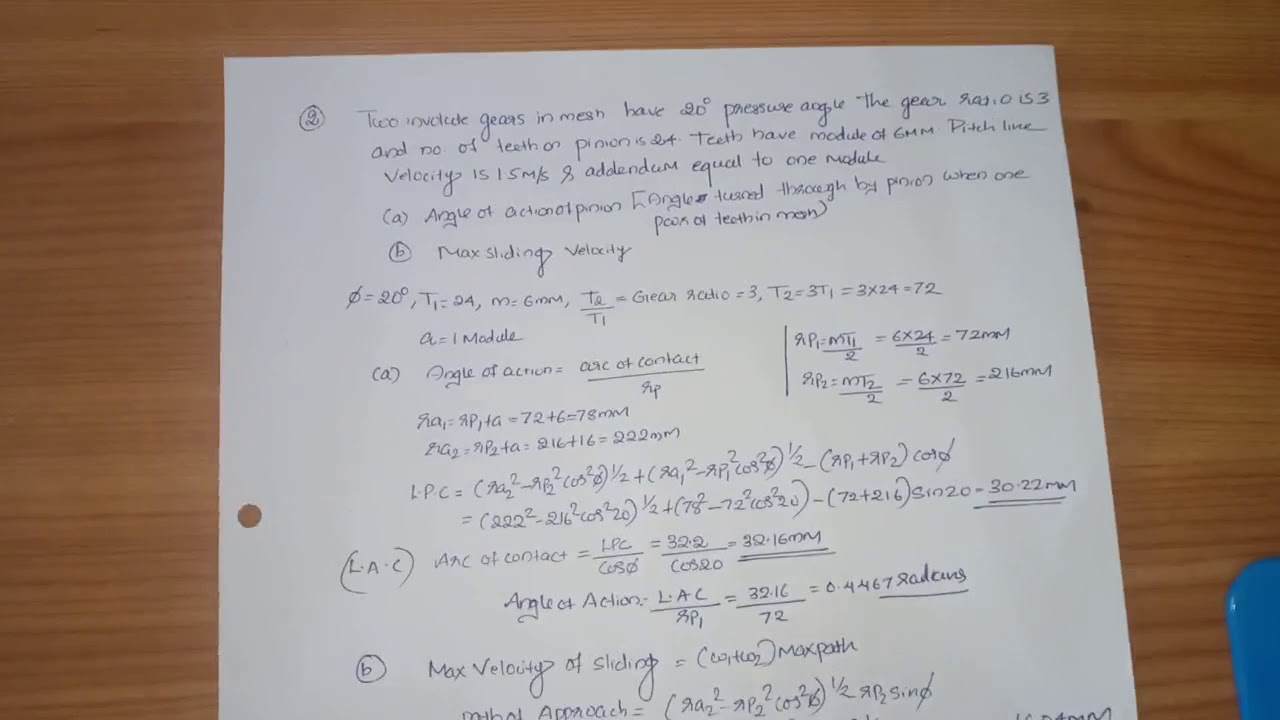 ② Two involute gears in mesh have 20° pressure angle The gear ratio is 3
and no. of teeth on pinion is 24. Teeth have module of 6MM. Pitch line
Velocity is 1.5M/s & addendum equal to one module
(a) Angle of action of pinion [Angle turned through by pinion when one
pair of teeth in mesh)
ⓑ Max sliding Velocity
φ = 20°, T₁ = 24, m = 6mm, T₂/T₁ = Gear ratio = 3, T₂ = 3T₁ = 3×24 = 72
a = 1 Module
rP₁ = mT₁/2 = 6×24/2 = 72mm
(a) Angle of action = arc of contact/rp
rP₂ = mT₂/2 = 6×72/2 = 216mm
ra₁ = rP₁+a = 72+6 = 78mm
ra₂ = rP₂+a = 216+16 = 222mm
L.P.C = (ra₂² - rP₂² cos²φ)^1/2 + (ra₁² - rP₁² cos²φ)^1/2 - (rP₁+rP₂) cosφ
= (222² - 216² cos²20)^1/2 + (78² - 72² cos²20) - (72+216) sin20 = 30.22mm
(L.A.C) Arc of contact = LPC/cosφ = 32.2/cos20 = 32.16mm
Angle of Action = L.A.C/rP₁ = 32.16/72 = 0.4467 radians
ⓑ Max Velocity of sliding = (ω₁+ω₂) Max path
path of Approach = (ra₂² - rP₂² cos²φ)^1/2 rP₂ sinφ